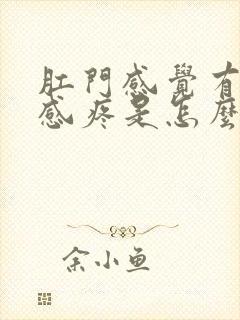 肛門感覺有
感疼是怎麼
余小鱼